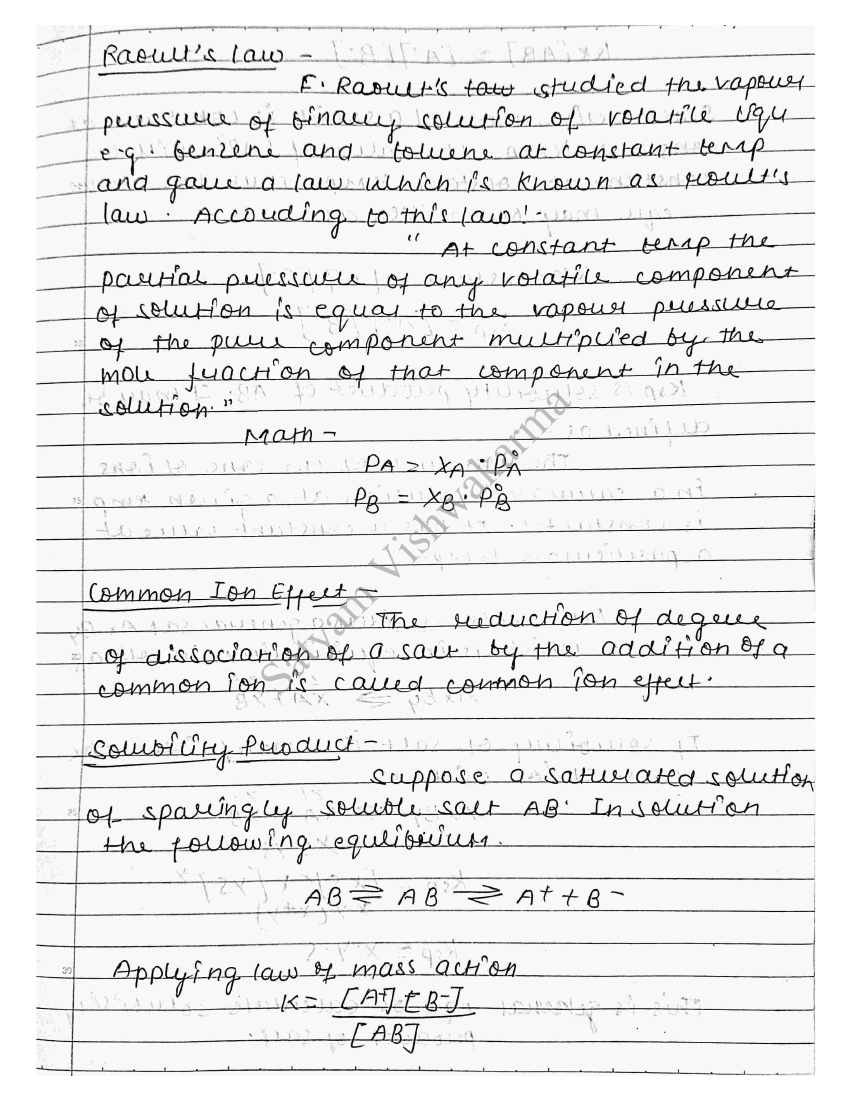 Raoult's law -
F. Raoult's law studied the vapour
pressure of binary solution of volatile liqu
e.g. benzene and toluene at constant temp
and gave a law which is known as roult's
law. According to this law:-
" At constant temp the
partial pressure of any volatile component
of solution is equal to the vapour pressure
of the pure component multiplied by the
mole fraction of that component in the
solution."
Math -
PA = XA · P°A
PB = XB · P°B
Common Ion Effect -
The reduction of degree
of dissociation of a salt by the addition of a
common ion is called common ion effect.
Solubility Product -
Suppose a saturated solution
of sparingly soluble salt AB. In solution
the following equlibrium.
AB ⇌ AB ⇌ A+ + B-
Applying law of mass action
K = [A+] [B-]
[AB]
Satyam Vishwakarma